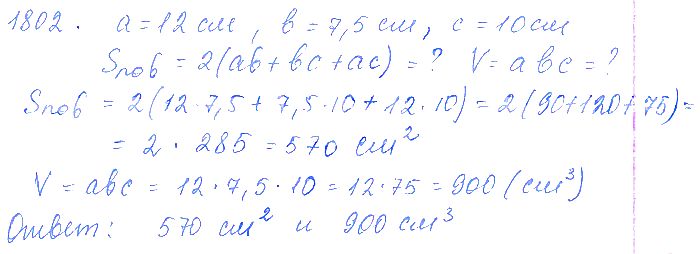 1802. a = 12 см, b = 7,5 см, c = 10 см
Sпов = 2(ab + bc + ac) = ? V = abc = ?
Sпов = 2(12·7,5 + 7,5·10 + 12·10) = 2(90+120+75) =
= 2 · 285 = 570 см²
V = abc = 12·7,5·10 = 12·75 = 900 (см³)
Ответ: 570 см² и 900 см³